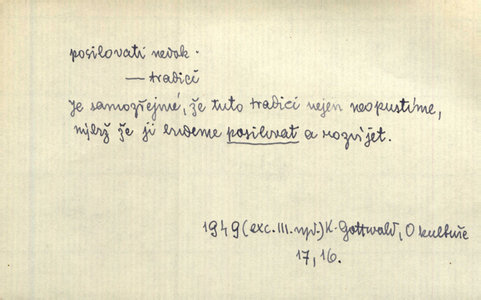 posilovati nedok.
— tradici
Je samozřejmé, že tuto tradici nejen neopustíme,
nýbrž že ji budeme posilovat a rozvíjet.
1949 (exc. III. vyd.) K. Gottwald, O kultuře
17, 16.